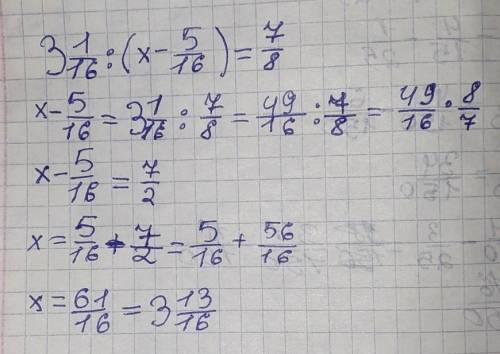 3 1/16 : (x - 5/16) = 7/8
x - 5/16 = 3 1/16 : 7/8 = 49/16 : 7/8 = 49/16 · 8/7
x - 5/16 = 7/2
x = 5/16 + 7/2 = 5/16 + 56/16
x = 61/16 = 3 13/16